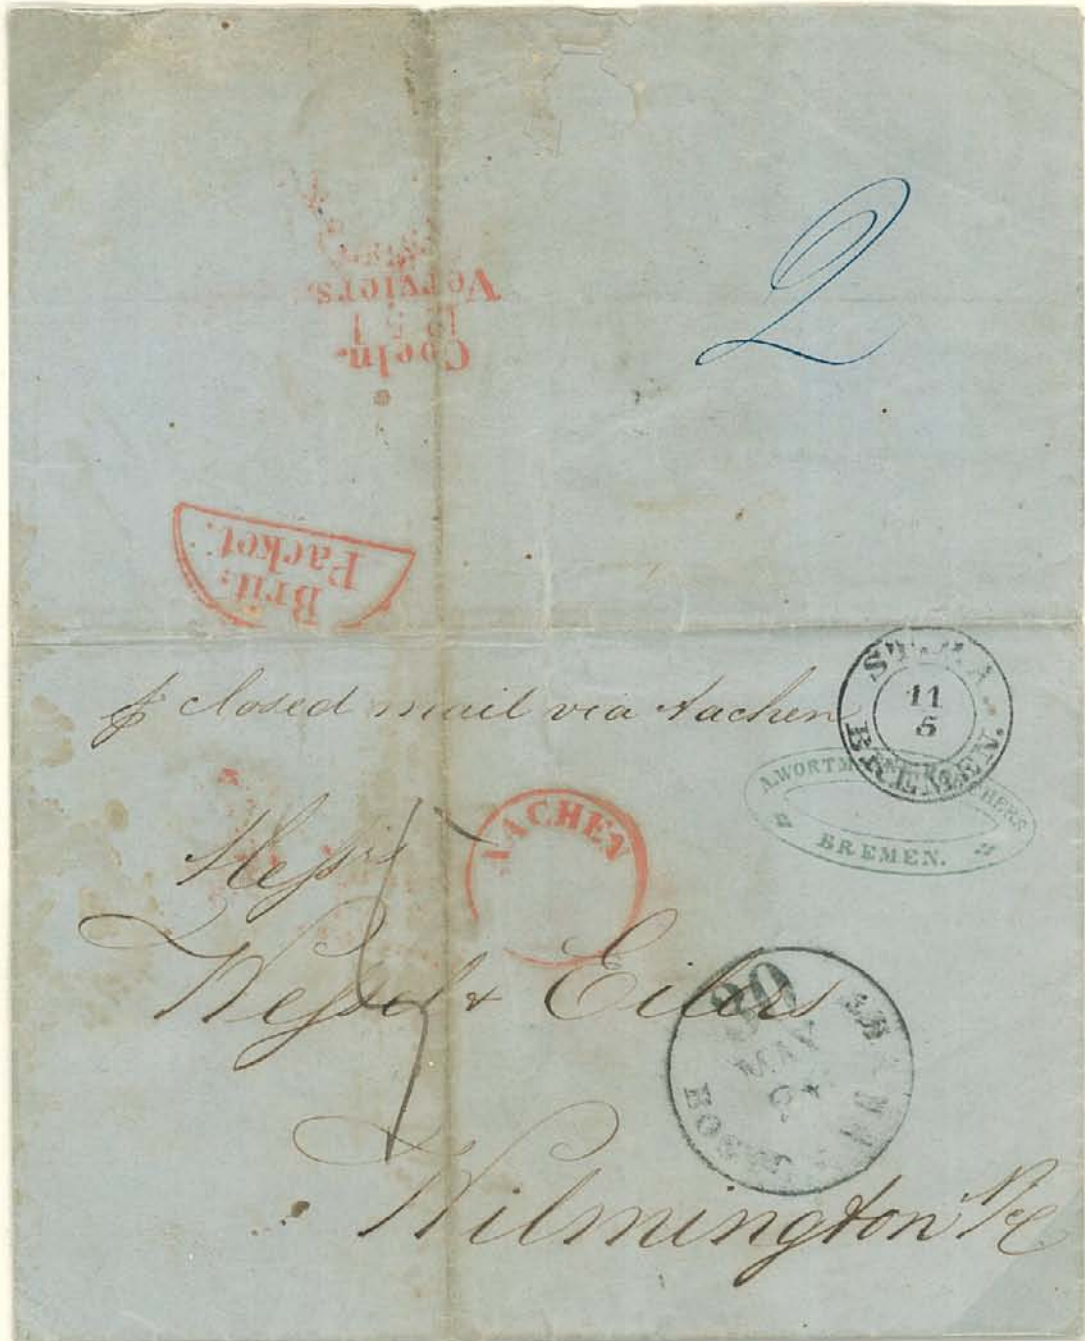 2
Verviers.
Coeln.
Brit:
Packet.
p closed mail via Aachen
ST.P.A.
11
5
BREMEN.
A.WORTM
BREMEN.
AACHEN
Mess
Wessel & Eilers
30
MAY
BOSTON
Wilmington NC